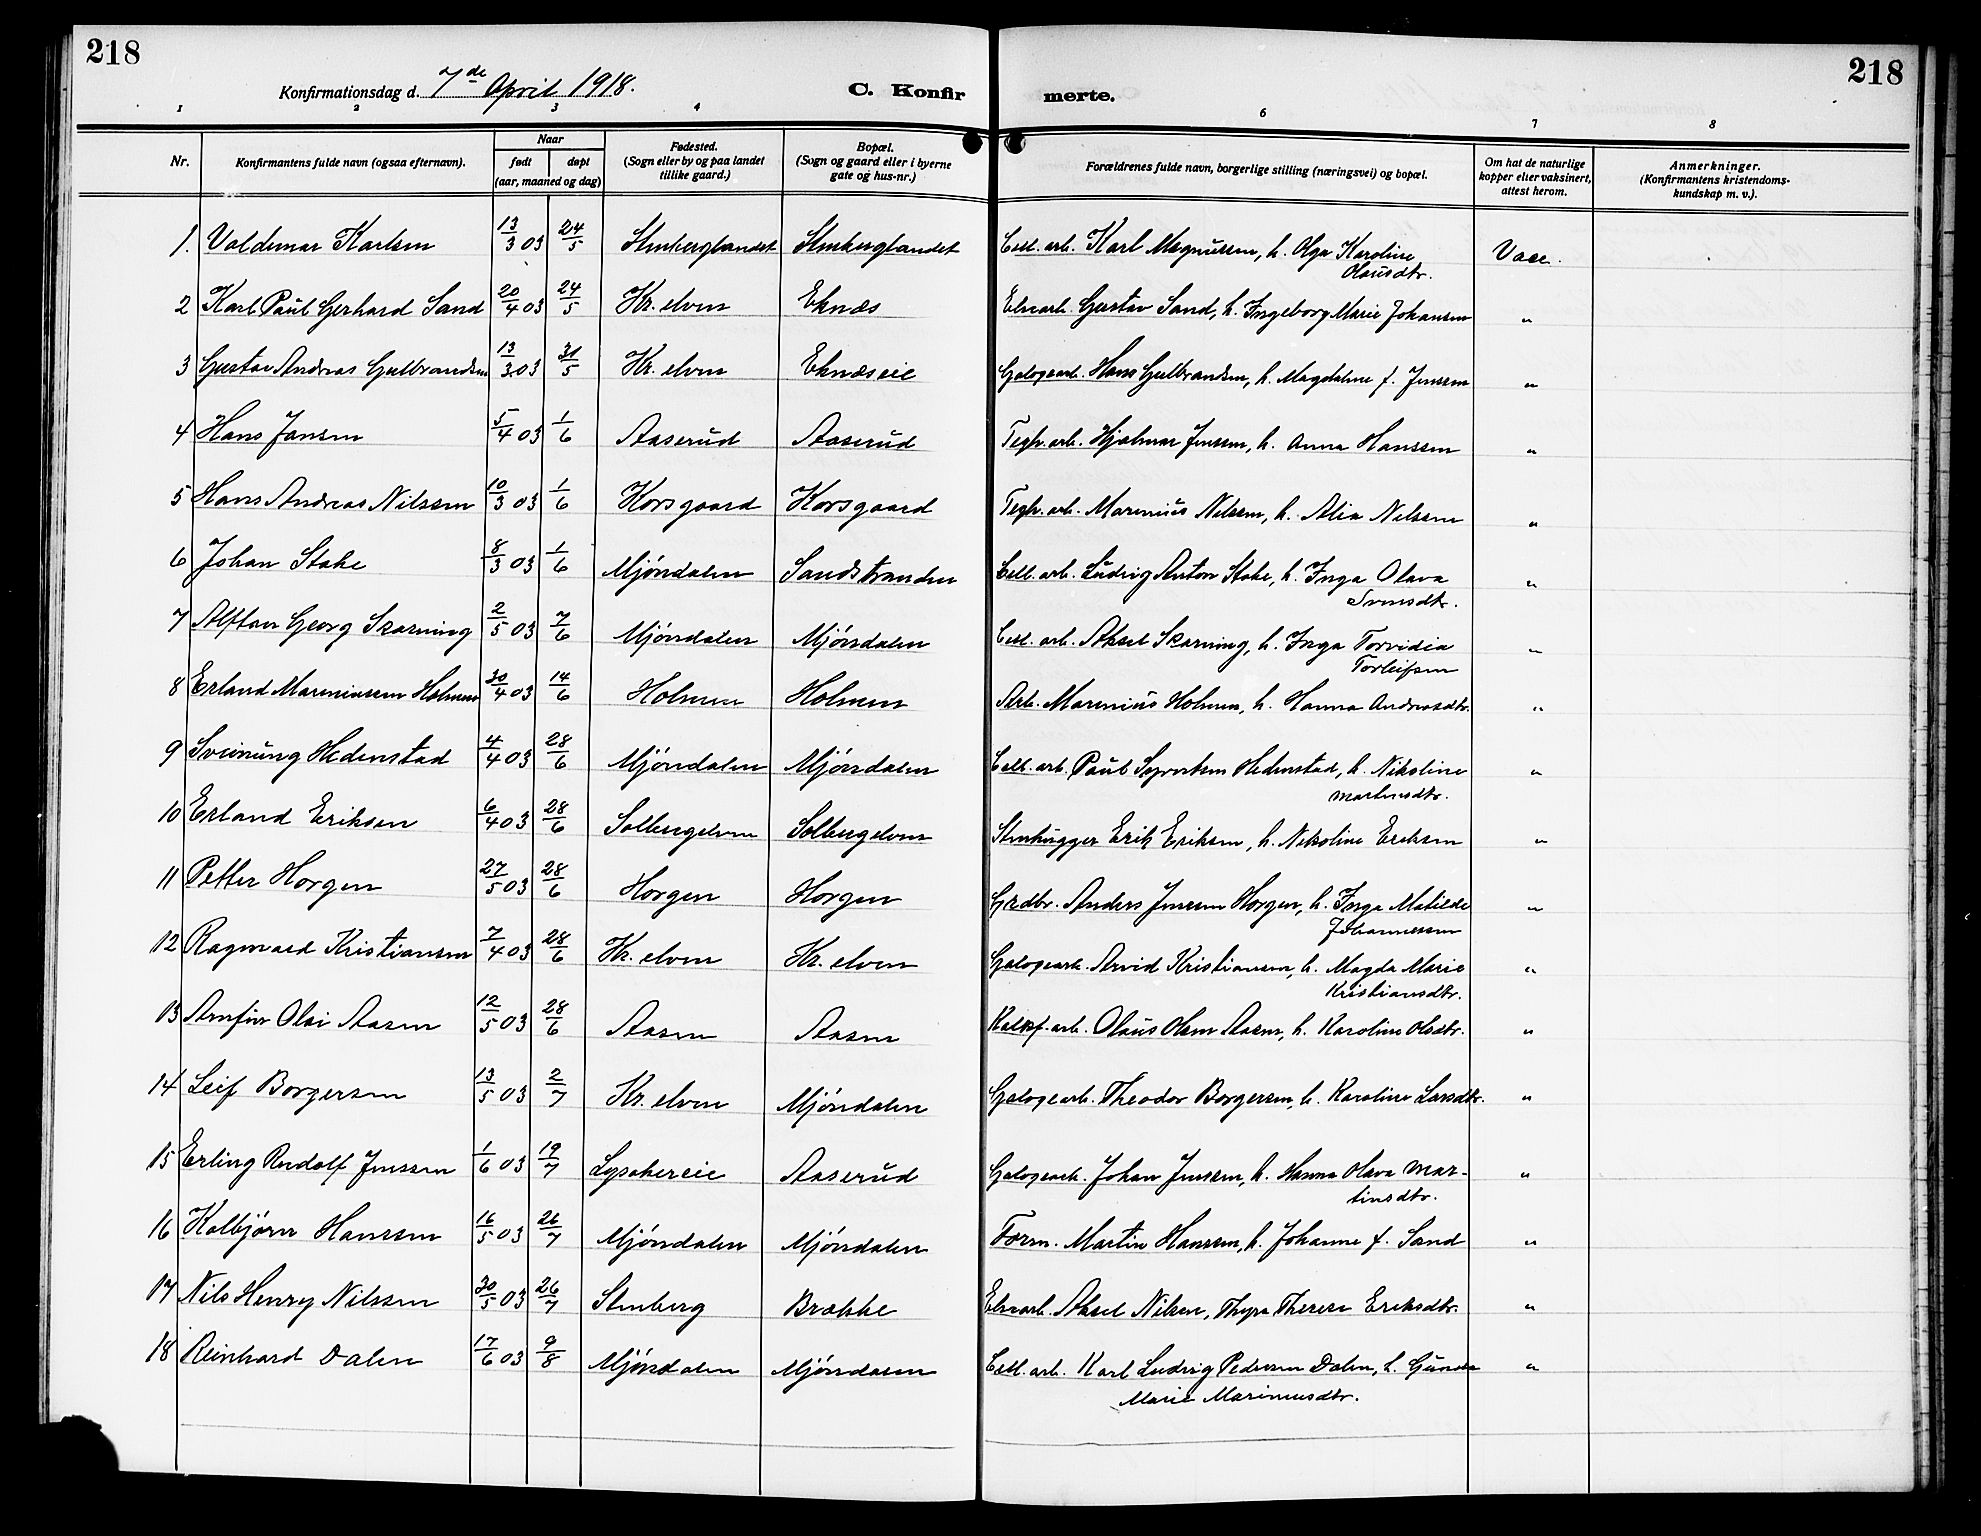 218
218
Konfirmationsdag d. 7de April 1918.
C. Konfir merte.
1 2 3 4 6 7 8
Nr. Konfirmantens fulde navn (ogsaa efternavn). Naar født døpt (aar, maaned og dag) Fødested. (Sogn eller by og paa landet tillike gaard.) Bopæl. (Sogn og gaard eller i byerne gate og hus-nr.) Forældrenes fulde navn, borgerlige stilling (næringsvei) og bopæl. Om hat de naturlige kopper eller vaksinert, attest herom. Anmerkninger. (Konfirmantens kristendoms-kundskap m. v.).
1. Valdemar Karlsen 13/3 03 24/5 Stenberglandet Stenberglandet Cell. arb. Karl Magnussen, h. Olga Karoline Olausdtr. Vacc.
2 Karl Paul Gerhard Sand 20/4 03 24/5 Kr. elven Eknæs Elvearb. Gustav Sand, h. Ingeborg Marie Johansen "
3 Gustav Andreas Gulbrandsen 13/3 03 31/5 Kr. elven Eknæseie Galogearb. Hans Gulbrandsen, h. Magdalene f. Jenssen "
4 Hans Jansen 5/4 03 1/6 Aaserud Aaserud Teglv. arb. Hjalmar Jenssen, h. Anna Hanssen "
5 Hans Andreas Nilssen 10/3 03 1/6 Korsgaard Korsgaard Teglv. arb. Marenius Nilssen, h. Alia Nilssen "
6 Johan Stake 8/3 03 1/6 Mjøndalen Sandstranden Cell. arb. Ludvig Anton Stake, h. Inga Olava Svensdtr. "
7 Alftan Georg Skarning 2/5 03 7/6 Mjøndalen Mjøndalen Cell. arb. Aksel Skarning, h. Inga Torvidia Torleifsen "
8 Erland Mareniussen Holmen 30/4 03 14/6 Holmen Holmen Arb. Marenius Holmen, h. Hanna Andreasdtr. "
9 Sveinung Hedenstad 4/4 03 28/6 Mjøndalen Mjøndalen Cell. arb. Paul Syvertsen Hedenstad, h. Nikoline Martinsdtr. "
10 Erland Eriksen 6/4 03 28/6 Solbergelven Solbergelven Stenhugger Erik Eriksen, h. Nikoline Eriksen "
11 Petter Horgen 27/5 03 28/6 Horgen Horgen Grdbr. Anders Jenssen Horgen, h. Inga Matilde Johannessen "
12 Ragnvald Kristiansen 7/4 03 28/6 Kr. elven Kr. elven Galogearb. Arvid Kristiansen, h. Magda Marie Kristiansdtr. "
13 Arnfin Olai Aasen 12/5 03 28/6 Aasen Aasen Kalkf. arb. Olaus Olsen Aasen, h. Karoline Olsdtr. "
14 Leif Borgersen 13/5 03 2/7 Kr. elven Mjøndalen Galogearb. Theodor Borgersen, h. Karoline Larsdtr. "
15 Erling Rudolf Jenssen 1/6 03 19/7 Lysakereie Aaserud Galogearb. Johan Jenssen, h. Hanna Olava Mar-tinsdtr. "
16 Kolbjørn Hanssen 16/5 03 26/7 Mjøndalen Mjøndalen Form. Martin Hanssen, h. Johanne f. Sand "
17 Nils Henry Nilssen 30/5 03 26/7 Stenberg Brække Elvearb. Aksel Nilsen, Thyra Therese Eriksdtr. "
18 Reinhard Dalen 17/6 03 9/8 Mjøndalen Mjøndalen Cell. arb. Karl Ludvig Pedersen Dalen, h. Gunda Marie Mariniusdtr. "